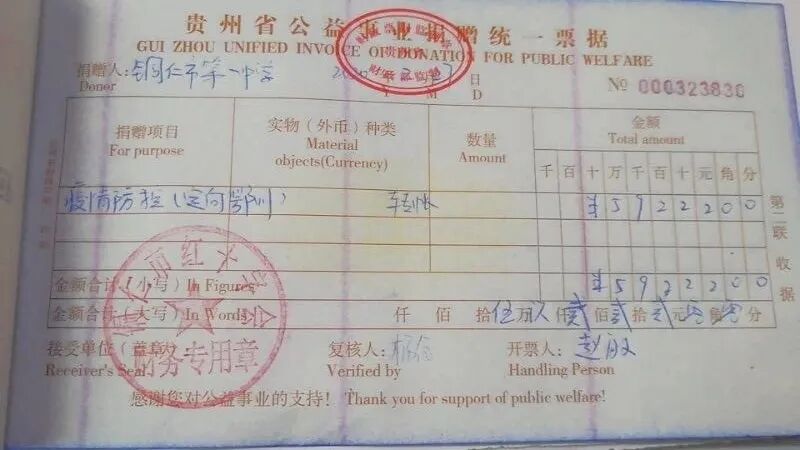 贵州省公益事业捐赠统一票据
GUI ZHOU UNIFIED INVOICE OF DONATION FOR PUBLIC WELFARE
捐赠人: 铜仁市第一中学 日
Donor Y M D № 000323830
捐赠项目 实物（外币）种类 数量 金额
For purpose Material objects(Currency) Amount Total amount
千 百 十 万 千 百 十 元 角 分
疫情防控（定向鄂州） 转帐 ¥ 5 9 2 2 2 0 0
金额合计（小写）In Figures ¥ 5 9 2 2 2 0 0
金额合计（大写）In Words 仟 佰 拾 伍万 仟 贰 佰 贰 拾 贰 元 角 分
接受单位（盖章） 复核人: 开票人:
Receiver's Seal Verified by Handling Person
感谢您对公益事业的支持！ Thank you for support of public welfare!
第二联 收据
财务专用章